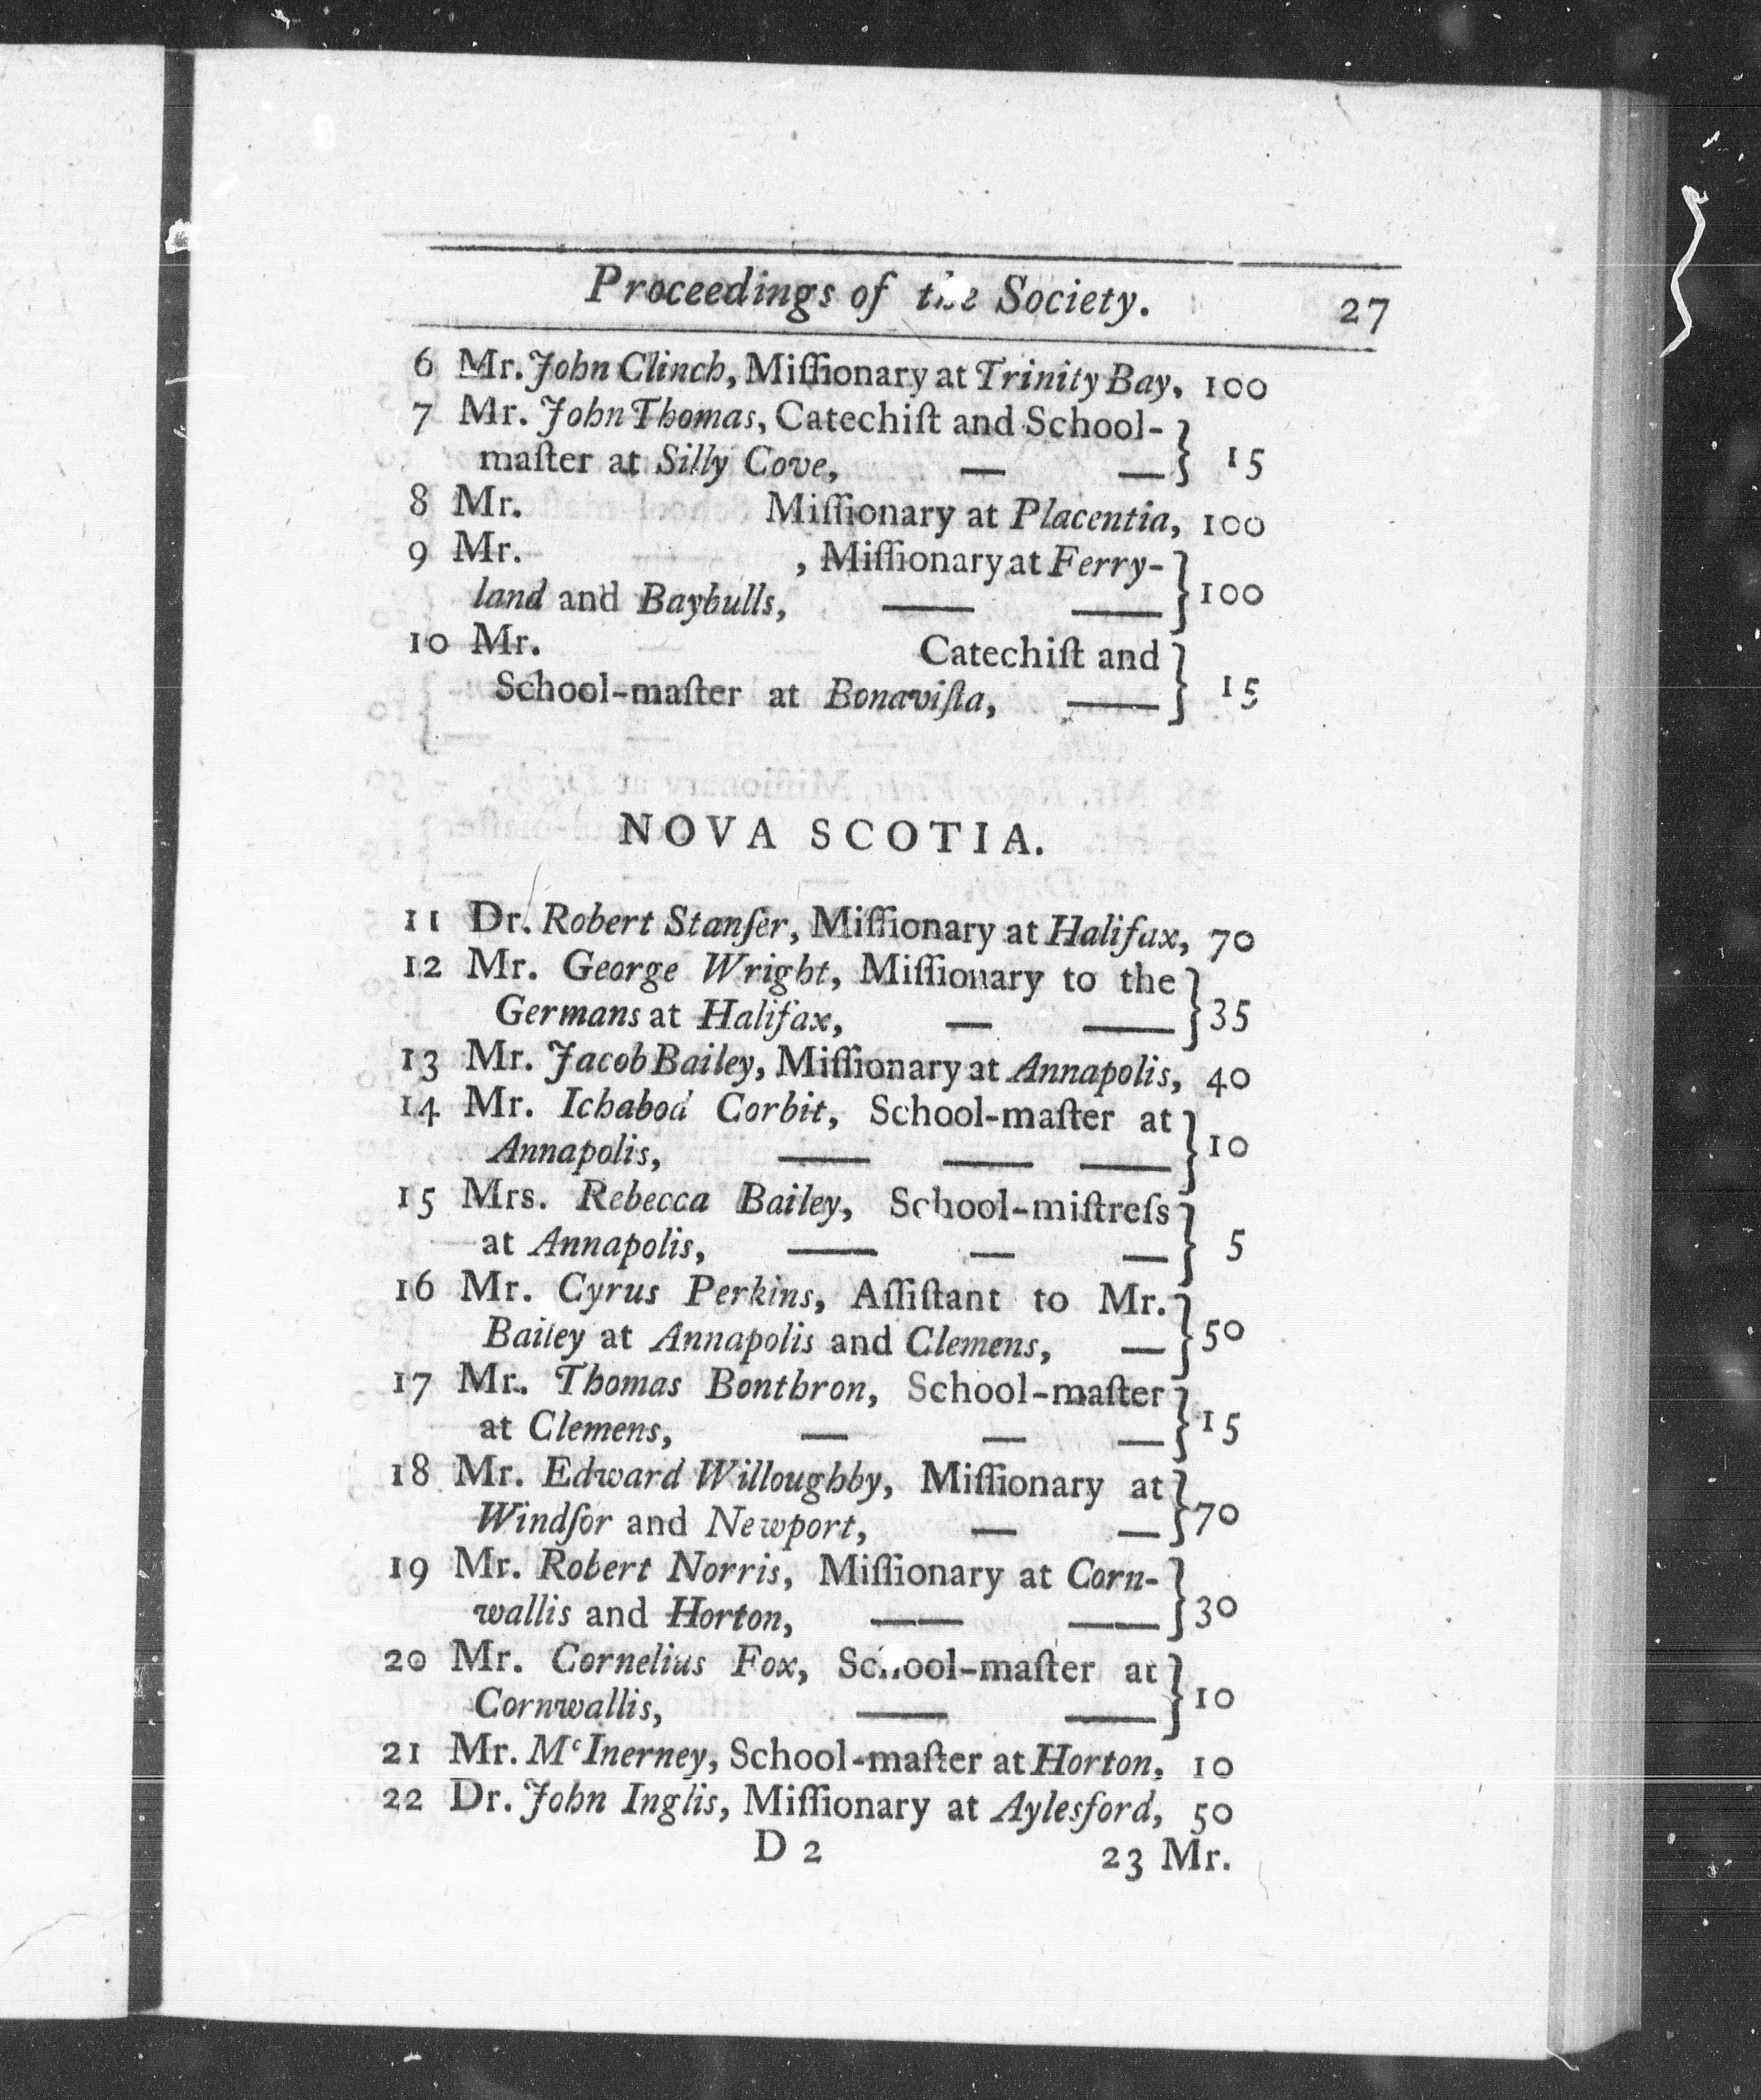 Proceedings of the Society. 27
6 Mr. John Clinch, Miſſionary at Trinity Bay, 100
7 Mr. John Thomas, Catechiſt and School-
maſter at Silly Cove, — — } 15
8 Mr. Miſſionary at Placentia, 100
9 Mr. , Miſſionary at Ferry-
land and Baybulls, — — } 100
10 Mr. Catechiſt and
School-maſter at Bonaviſta, — } 15
NOVA SCOTIA.
11 Dr. Robert Stanſer, Miſſionary at Halifax, 70
12 Mr. George Wright, Miſſionary to the
Germans at Halifax, — — } 35
13 Mr. Jacob Bailey, Miſſionary at Annapolis, 40
14 Mr. Ichabod Corbit, School-maſter at
Annapolis, — — — } 10
15 Mrs. Rebecca Bailey, School-miſtreſs
at Annapolis, — — — } 5
16 Mr. Cyrus Perkins, Aſſiſtant to Mr.
Bailey at Annapolis and Clemens, — } 50
17 Mr. Thomas Bonthron, School-maſter
at Clemens, — — — } 15
18 Mr. Edward Willoughby, Miſſionary at
Windſor and Newport, — — } 70
19 Mr. Robert Norris, Miſſionary at Corn-
wallis and Horton, — — } 30
20 Mr. Cornelius Fox, School-maſter at
Cornwallis, — — } 10
21 Mr. McInerney, School-maſter at Horton, 10
22 Dr. John Inglis, Miſſionary at Aylesford, 50
D 2 23 Mr.